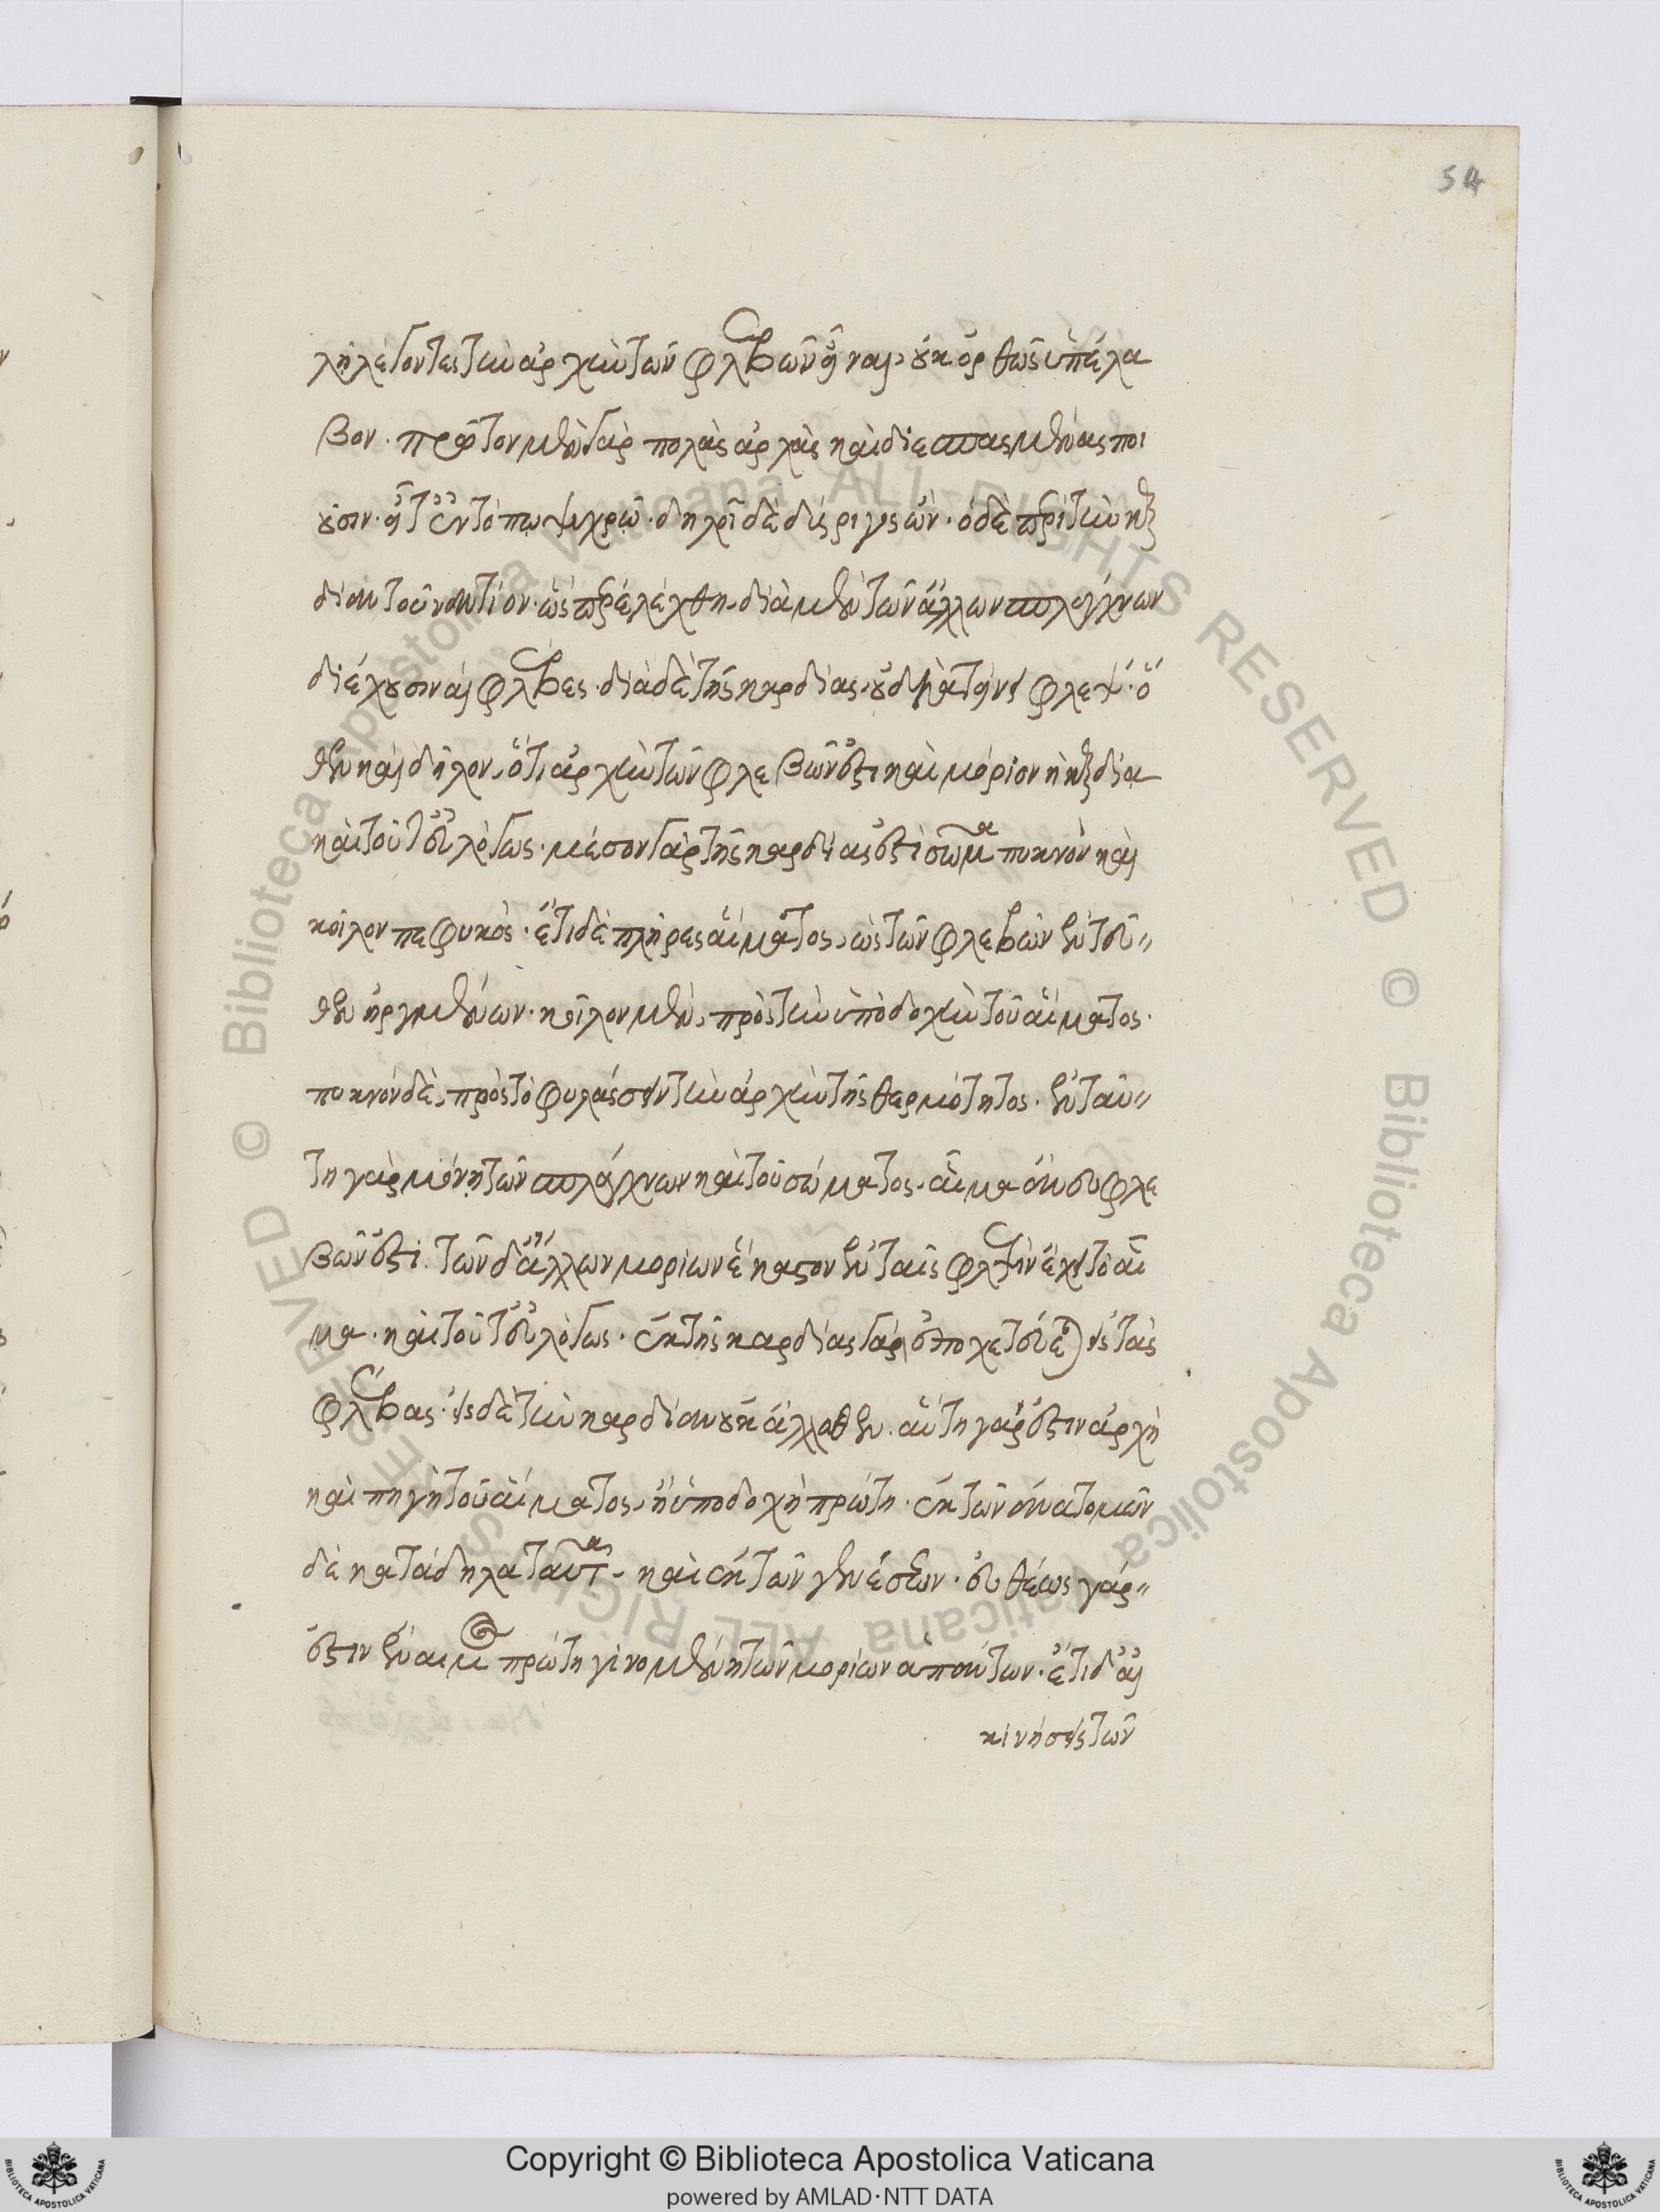 54
λῇ λέγοντες τὴν ἀρχὴν τῶν φλεβῶν εἶναι, οὐκ ὀρθῶς ὑπέλα
βον. πρῶτον μὲν γὰρ πολὰς ἀρχὰς καὶ διεσπασμένας ποι
οῦσιν. εἶτ' ἐν τόπῳ ψυχρῷ. δηλοῖ δὲ δύσριγος ὤν. ὁ δὲ περὶ τὴν καρ
δίαν τοὐναντίον. ὥσπερ ἐλέχθη. διὰ μὲν τῶν ἄλλων σπλάγχνων
διέχουσιν αἱ φλέβες. διὰ δὲ τῆς καρδίας, οὐδεμία τείνει φλέψ. ὅ
θεν καὶ δῆλον, ὅτι ἀρχὴ τῶν φλεβῶν ἐστι καὶ μόριον ἡ καρδία
καὶ τοῦτ' εὐλόγως. μέσον γὰρ τῆς καρδίας ἐστὶ σῶμα πυκνὸν καὶ
κοῖλον πεφυκός. ἔτι δὲ πλῆρες αἵματος, ὡς τῶν φλεβῶν ἐντεῦ
θεν ἠργμένων. κοῖλον μὲν, πρὸς τὴν ὑποδοχὴν τοῦ αἵματος.
πυκνὸν δὲ, πρὸς τὸ φυλάσσειν τὴν ἀρχὴν τῆς θερμότητος. ἐν ταύ
τῃ γὰρ μόνῃ τῶν σπλάγχνων καὶ τοῦ σώματος, αἷμα ἄνευ φλε
βῶν ἐστί. τῶν δ' ἄλλων μορίων ἕκαστον ἐν ταῖς φλεψὶν ἔχει τὸ αἷ
μα. καὶ τοῦτ' εὐλόγως. ἐκ τῆς καρδίας γὰρ ἐποχετεύεται εἰς τὰς
φλέβας. εἰς δὲ τὴν καρδίαν οὐκ ἄλλοθεν. αὕτη γάρ ἐστιν ἀρχὴ
καὶ πηγὴ τοῦ αἵματος, ἢ ὑποδοχὴ πρώτη. ἐκ τῶν ἀνατομῶν
δὲ κατάδηλα ταῦτα, καὶ ἐκ τῶν γενέσεων. εὐθέως γάρ
ἐστιν ἔναιμος πρώτη γινομένη τῶν μορίων ἁπάντων. ἔτι δ' αἱ
κινήσεις τῶν
Copyright © Biblioteca Apostolica Vaticana
powered by AMLAD·NTT DATA